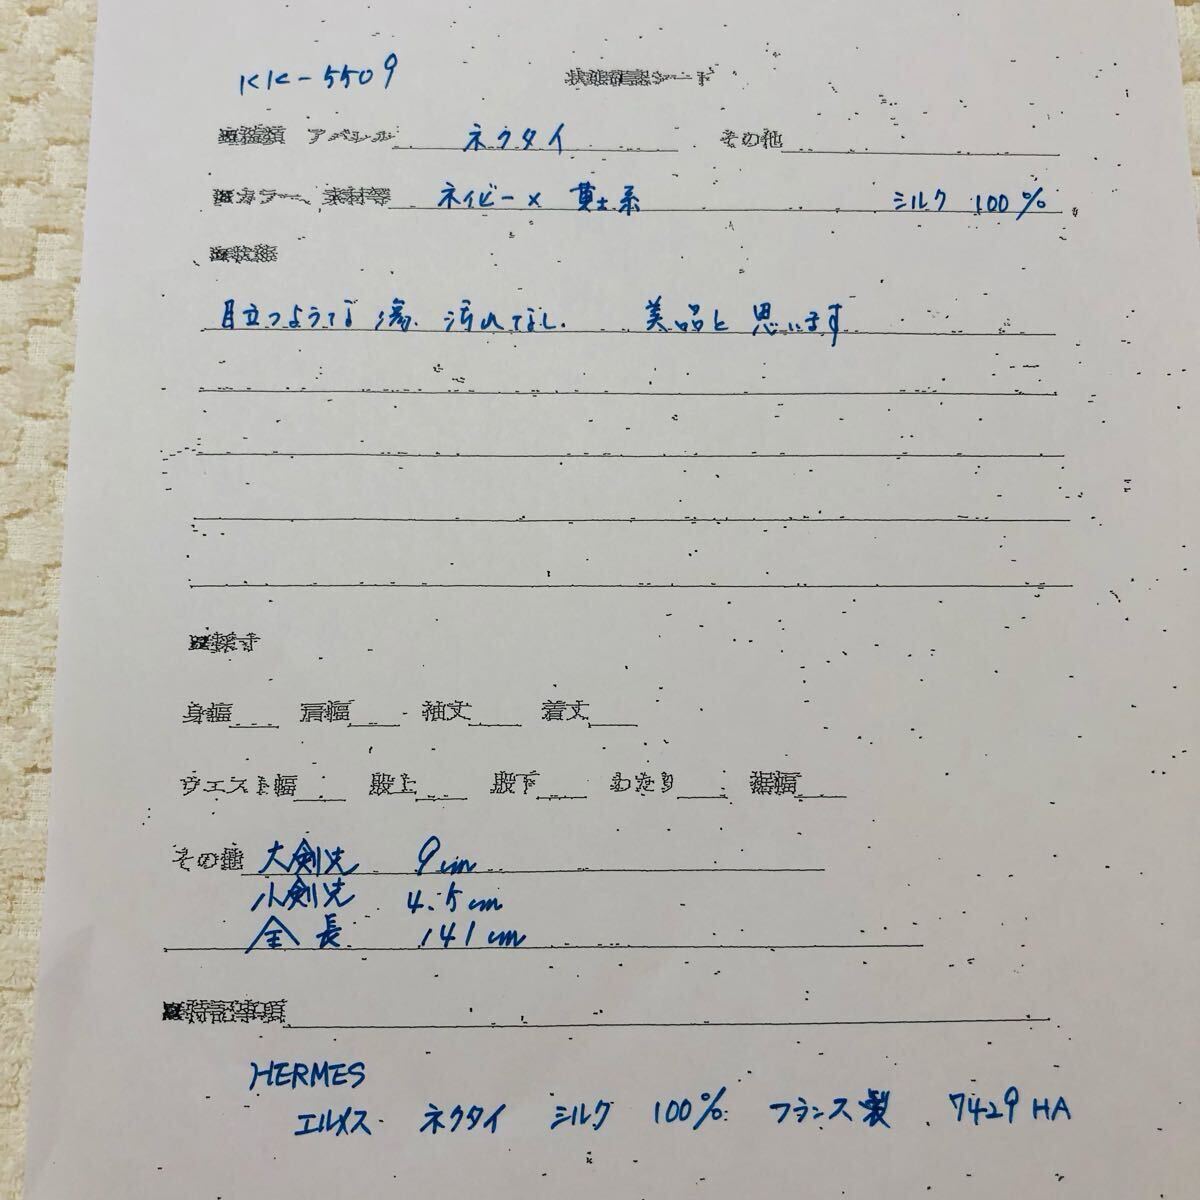 KK-5509 状態確認シート
■種類 アパレル ネクタイ その他
■カラー、素材等 ネイビー× 黄土系 シルク 100%
■状態
目立つような 傷、汚れなし. 美品と思います
■採寸
身幅 肩幅 袖丈 着丈
ウエスト幅 股上 股下 わたり 裾幅
その他 大剣先 9cm
小剣先 4.5cm
全長 141cm
■特記事項
HERMES
エルメス ネクタイ シルク 100% フランス製 7429 HA